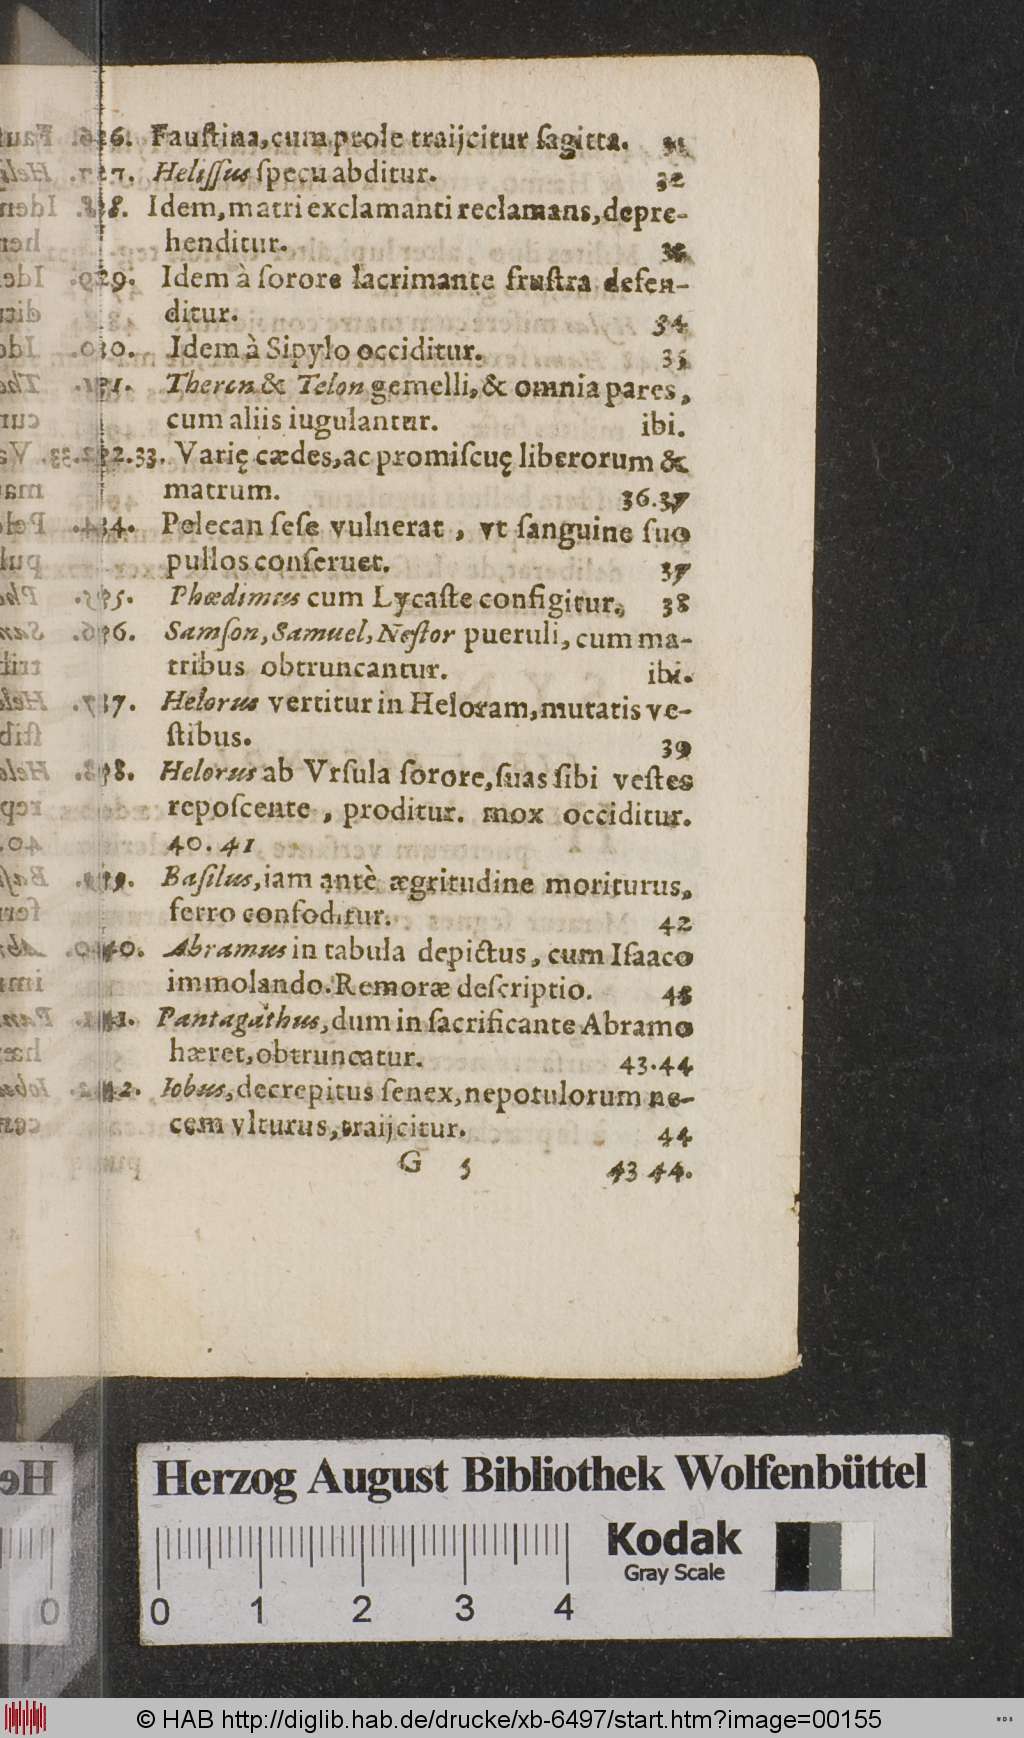 26. Fauſtina, cum prole traijcitur ſagitta. 31
27. Heliſſus ſpecu abditur. 32
28. Idem, matri exclamanti reclamans, depre-
henditur.
29. Idem à ſorore lacrimante fruſtra defen-
ditur. 34
30. Idem à Sipylo occiditur. 35
31. Theron & Telon gemelli, & omnia pares,
cum aliis iugulantur. ibi.
32.33. Varię cædes, ac promiſcuę liberorum &
matrum. 36.37
34. Pelecan ſeſe vulnerat, vt ſanguine ſuo
pullos conſeruet. 37
35. Phœdimus cum Lycaſte configitur, 38
36. Samſon, Samuel, Neſtor pueruli, cum ma-
tribus obtruncantur. ibi.
37. Helorus vertitur in Heloram, mutatis ve-
ſtibus. 39
38. Helorus ab Vrſula ſorore, ſuas ſibi veſtes
repoſcente, proditur. mox occiditur.
40. 41
39. Baſilus, iam antè ægritudine moriturus,
ferro confoditur. 42
40. Abramus in tabula depictus, cum Iſaaco
immolando. Remoræ deſcriptio. 43
41. Pantagathus, dum in ſacrificante Abramo
hæret, obtruncatur. 43.44
42. Iobus, decrepitus ſenex, nepotulorum ne-
cem vlturus, traijcitur. 44
G 5 43 44.
Herzog August Bibliothek Wolfenbüttel
Kodak
Gray Scale
0 1 2 3 4
© HAB http://diglib.hab.de/drucke/xb-6497/start.htm?image=00155